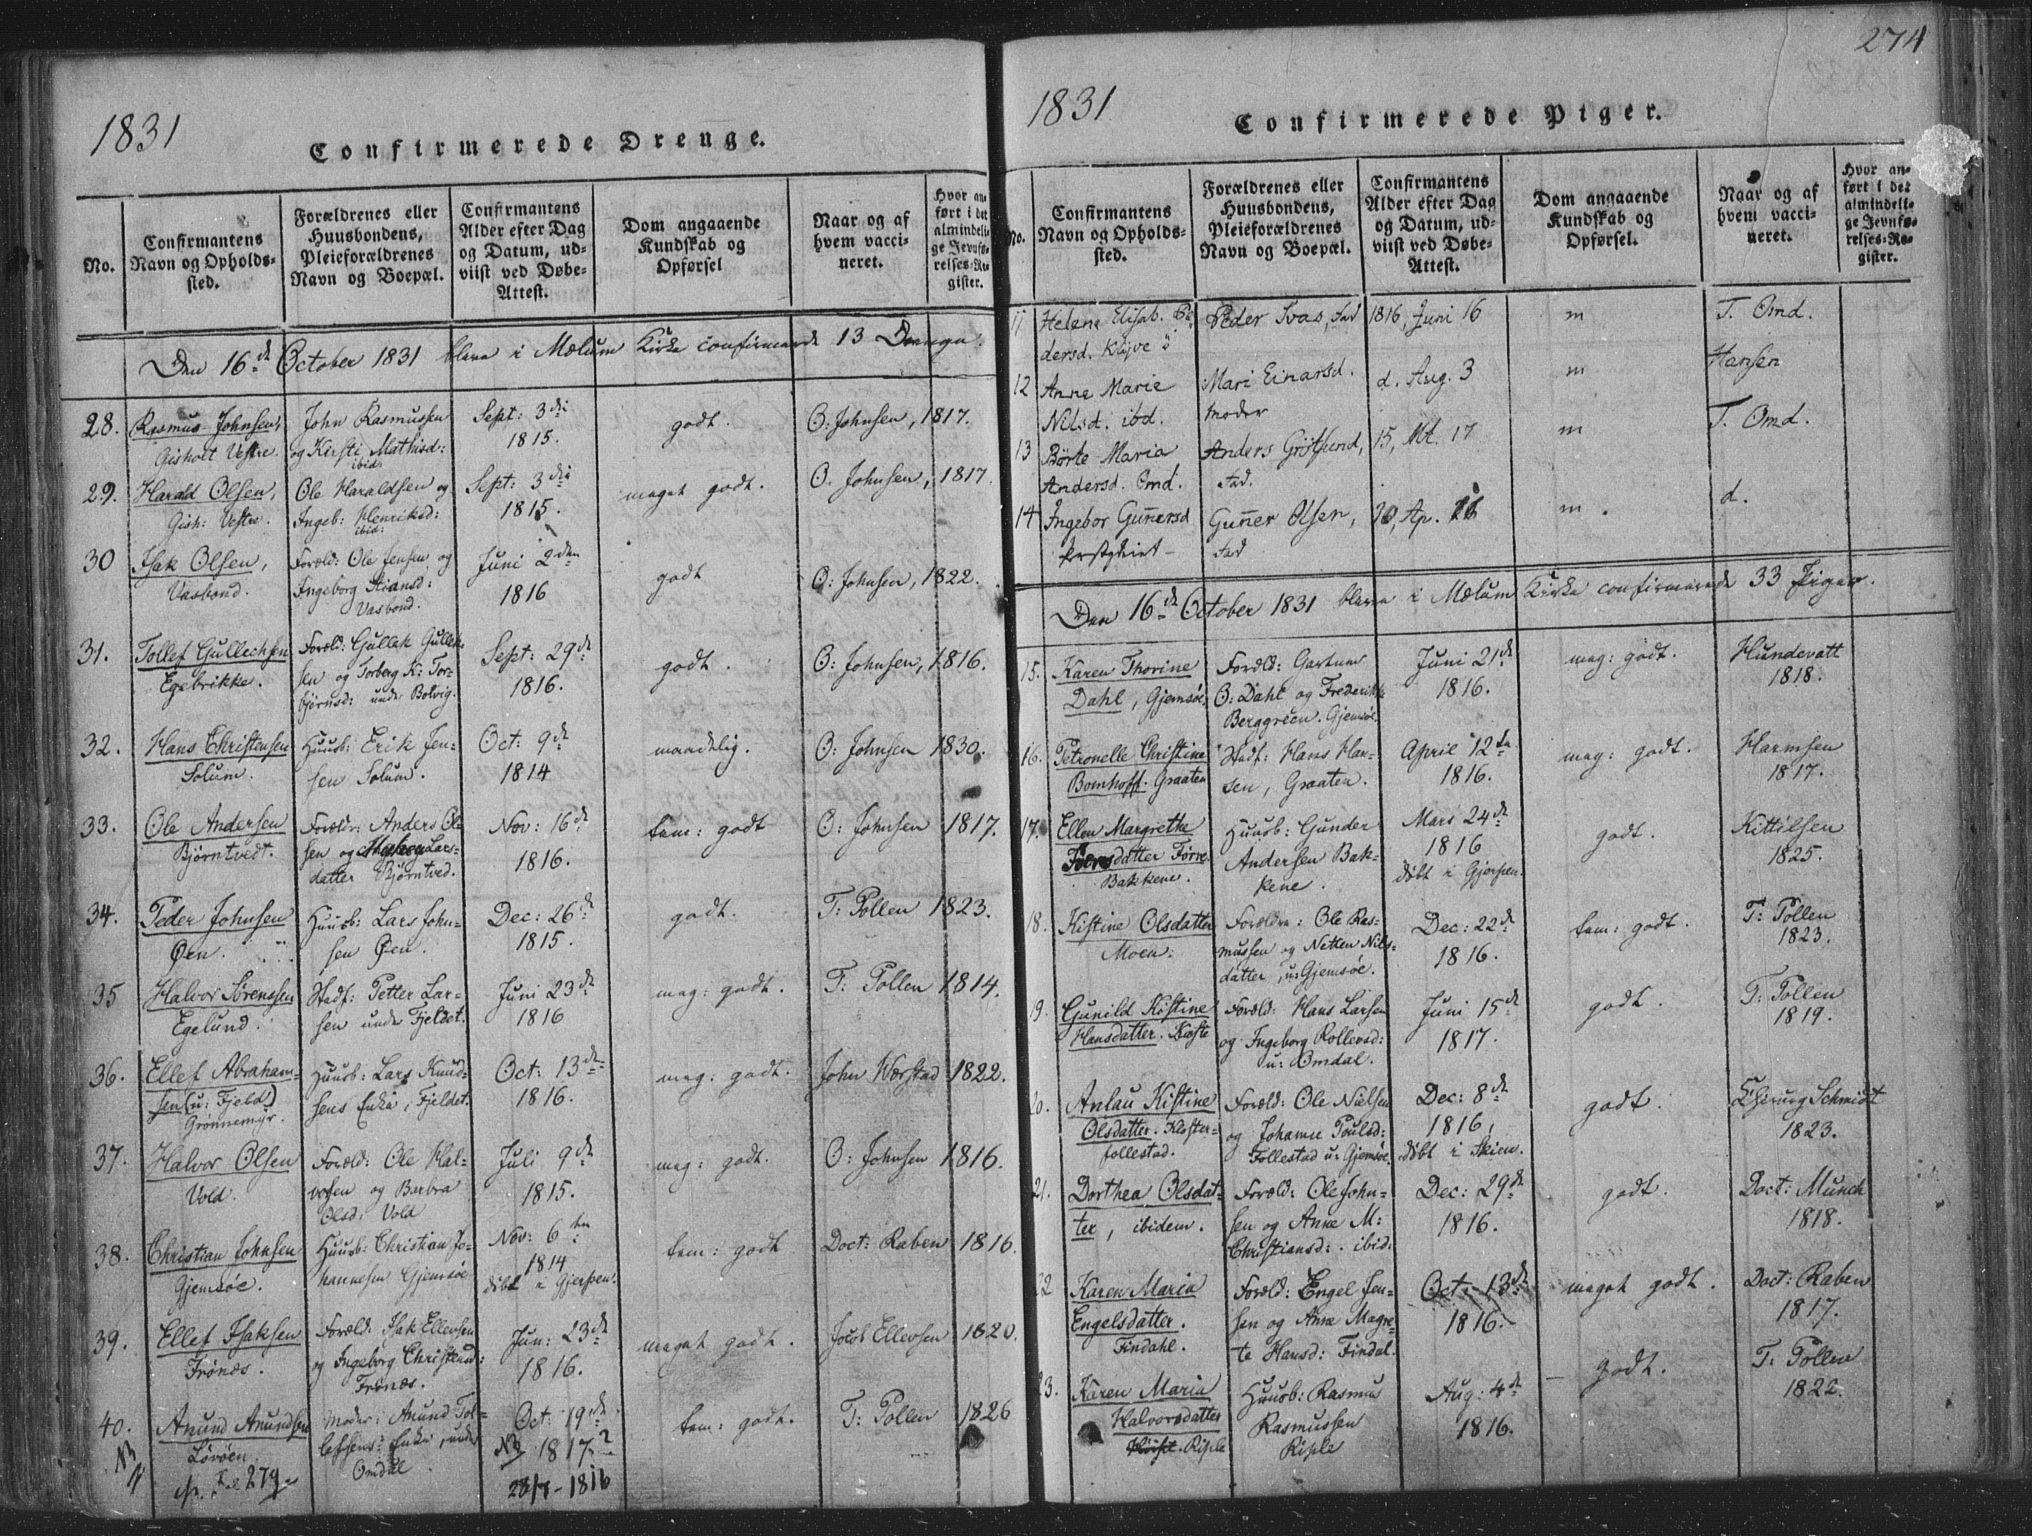 1831
Confirmerede Drenge.
No.
Confirmantens
Navn og Opholds-
sted.
Forældrenes eller
Huusbondens,
Pleieforældrenes
Navn og Boepæl.
Confirmantens
Alder efter Dag
og Datum, ud-
viist ved Døbe-
Attest.
Dom angaaende
Kundskab og
Opførsel
Naar og af
hvem vacci-
neret.
Hvor an-
ført i det
almindeli-
ge Jevnfø-
relses-Re-
gister.
Den 16de October 1831 bleve i Mælum Kirke confirmerede 13 Drenge.
28.
Rasmus Johnsen,
Gisholt Vestre.
John Rasmussen
og Kirsti Mathisd:
ibid:
Sept: 3die
1815.
godt.
O. Johnsen, 1817.
29.
Harald Olsen,
Gish: Vestre.
Ole Haraldsen og
Ingeb: Henriksd:
ibid:
Sept: 3die
1815.
meget godt.
O. Johnsen, 1817.
30
Isak Olsen,
Vasbond.
Foræld: Ole Jensen og
Ingeborg Kiansd:
Vasbond.
Juni 2den
1816
godt
O: Johnsen, 1822.
31.
Tollef Gullechsen
Egebrikke.
Foræld: Gullek Gullek-
sen og Torberg K: Tor-
bjørnsd: under Bolvig.
Sept: 29de
1816.
godt.
O: Johnsen, 1816.
32.
Hans Christensen
Solum.
Huusb: Erik Jen-
sen Solum.
Oct: 9de
1814
maadelig.
O: Johnsen 1830.
33.
Ole Andersen
Bjørntvedt.
Forældr: Anders Ol-
sen og Maren Lars-
datter Bjørntved.
Nov: 16de
1816.
tem: godt
O: Johnsen 1817.
34.
Peder Johnsen
Øen.
Huusb: Lars John-
sen Øen.
Dec: 26de
1815.
godt.
T: Pollen 1823.
35
Halvor Sørenssen
Egelund.
Stedf: Petter Lar-
sen under Fjeldet.
Juni 23de
1816
meg: godt.
T: Pollen 1814.
36.
Ellef Abraham-
sen (u: Fjeld)
Grønnemyr.
Huusb: Lars Knud-
sens Enke, Fjeldet.
Oct: 13de
1816.
meg: godt.
John Værstad 1822.
37.
Halvor Olsen
Vold.
Foræld: Ole Hal-
vorsen og Barbra
Olsd: Vold
Juli 9de
1815.
meg: godt.
O: Johnsen 1816.
38.
Christian Johnsen
Gjemsøe.
Huusb: Christian Jo-
hannesen Gjemsøe
Nov: 6ten
1814
døbt i Gjerpen.
tem: godt
Doct: Raben 1816.
39.
Ellef Isaksen
Frønæs.
Foræld: Isak Ellevsen
og Ingeborg Christensd:
Frønæs.
Jun: 23de
1816.
meget godt.
Jacob Ellevsen 1820.
40.
NB
Anund Anundsen
Lørøen.
Fol 279
Moder: Anund Tol-
lefsens Enke, under
Omdal
Oct: 19de
NB 1817?
28/7-1816
tem: godt.
T: Pollen 1826
274
1831
Confirmerede Piger.
No.
Confirmantens
Navn og Opholds-
sted.
Forældrenes eller
Huusbondens,
Pleieforældrenes
Navn og Boepæl.
Confirmantens
Alder efter Dag
og Datum, ud-
viist ved Døbe-
Attest.
Dom angaaende
Kundskab og
Opførsel.
Naar og af
hvem vacci-
neret.
Hvor an-
ført i det
almindeli-
ge Jevnfø-
relses-Re-
gister.
11
Helene Elisab. Pe-
dersd. Kløjve
Peder Svas, Fad
1816, Juni 16
m
T. Omd.
12
Anne Marie
Nilsd. ibd.
Mari Einarsd.
Moder
d. Aug. 3
m
Hansen
13
Børte Maria
Andersd. Omd.
Anders Grøtsund,
Fad.
15, Mt. 17
m
T. Omd.
14
Ingebor Guñersd
Guñer Olsen,
Fad
Ap.
m.
d.
Den 16de October 1831 bleve i Mælum Kirke confirmerede 33 Piger.
15.
Karen Thorine
Dahl, Gjemsøe.
Foræld: Gartner
O: Dahl og Frederikke
Berggreen. Gjemsøe.
Juni 21de
1816.
meg: godt.
Hundevatt
1818.
16.
Petronelle Christine
Bomhoff. Graaten
Stedf: Hans Han-
sen, Graaten.
April 12te
1816.
meg: godt.
Harmsen
1817.
17.
Ellen Margrethe
datter Førre
Bakkene.
Huusb: Gunder
Andersen Bak-
kene.
Mars 24de
1816
døbt i Gjerpen.
godt.
Kittilsen
1825.
18.
Kistine Olsdatter
Moen.
Forældre: Ole Ras-
mussen og Netten Nils-
datter, u: Gjemsøe.
Dec: 22de
1816.
tem: godt.
T: Pollen
1823.
19.
Gunild Kistine
Hansdatter. Kaste
Foræld: Hans Larsen
og Ingeborg Rollevsd:
u: Omdal.
Juni 15de
1817.
godt.
T: Pollen
1819.
20.
Anlau Kistine
Olsdatter. Kloster-
follestad.
Foræld: Ole Nielsen
og Johanne Poulsd:
Follestad u: Gjemsøe.
Dec: 8de
1816,
døbt i Skien.
godt.
Chirurg Schmidt
1823.
21.
Dorthea Olsdat-
ter, ibidem.
Foræld: Ole John-
sen og Anne M:
Christiansd: ibid:
Dec: 29de
1816.
godt.
Doct: Munch
1818.
22
Karen Maria
Engelsdatter.
Findahl.
Foræld: Engel Jen-
sen og Anne Magre-
te Hansd: Findal.
Oct: 13de
1816.
meget godt.
Doct: Raben
1817.
23.
Karen Maria
Halvorsdatter
Riple
Huusb: Rasmus
Rasmussen
Riple
Aug: 4de
1816.
godt.
T: Pollen
1822.